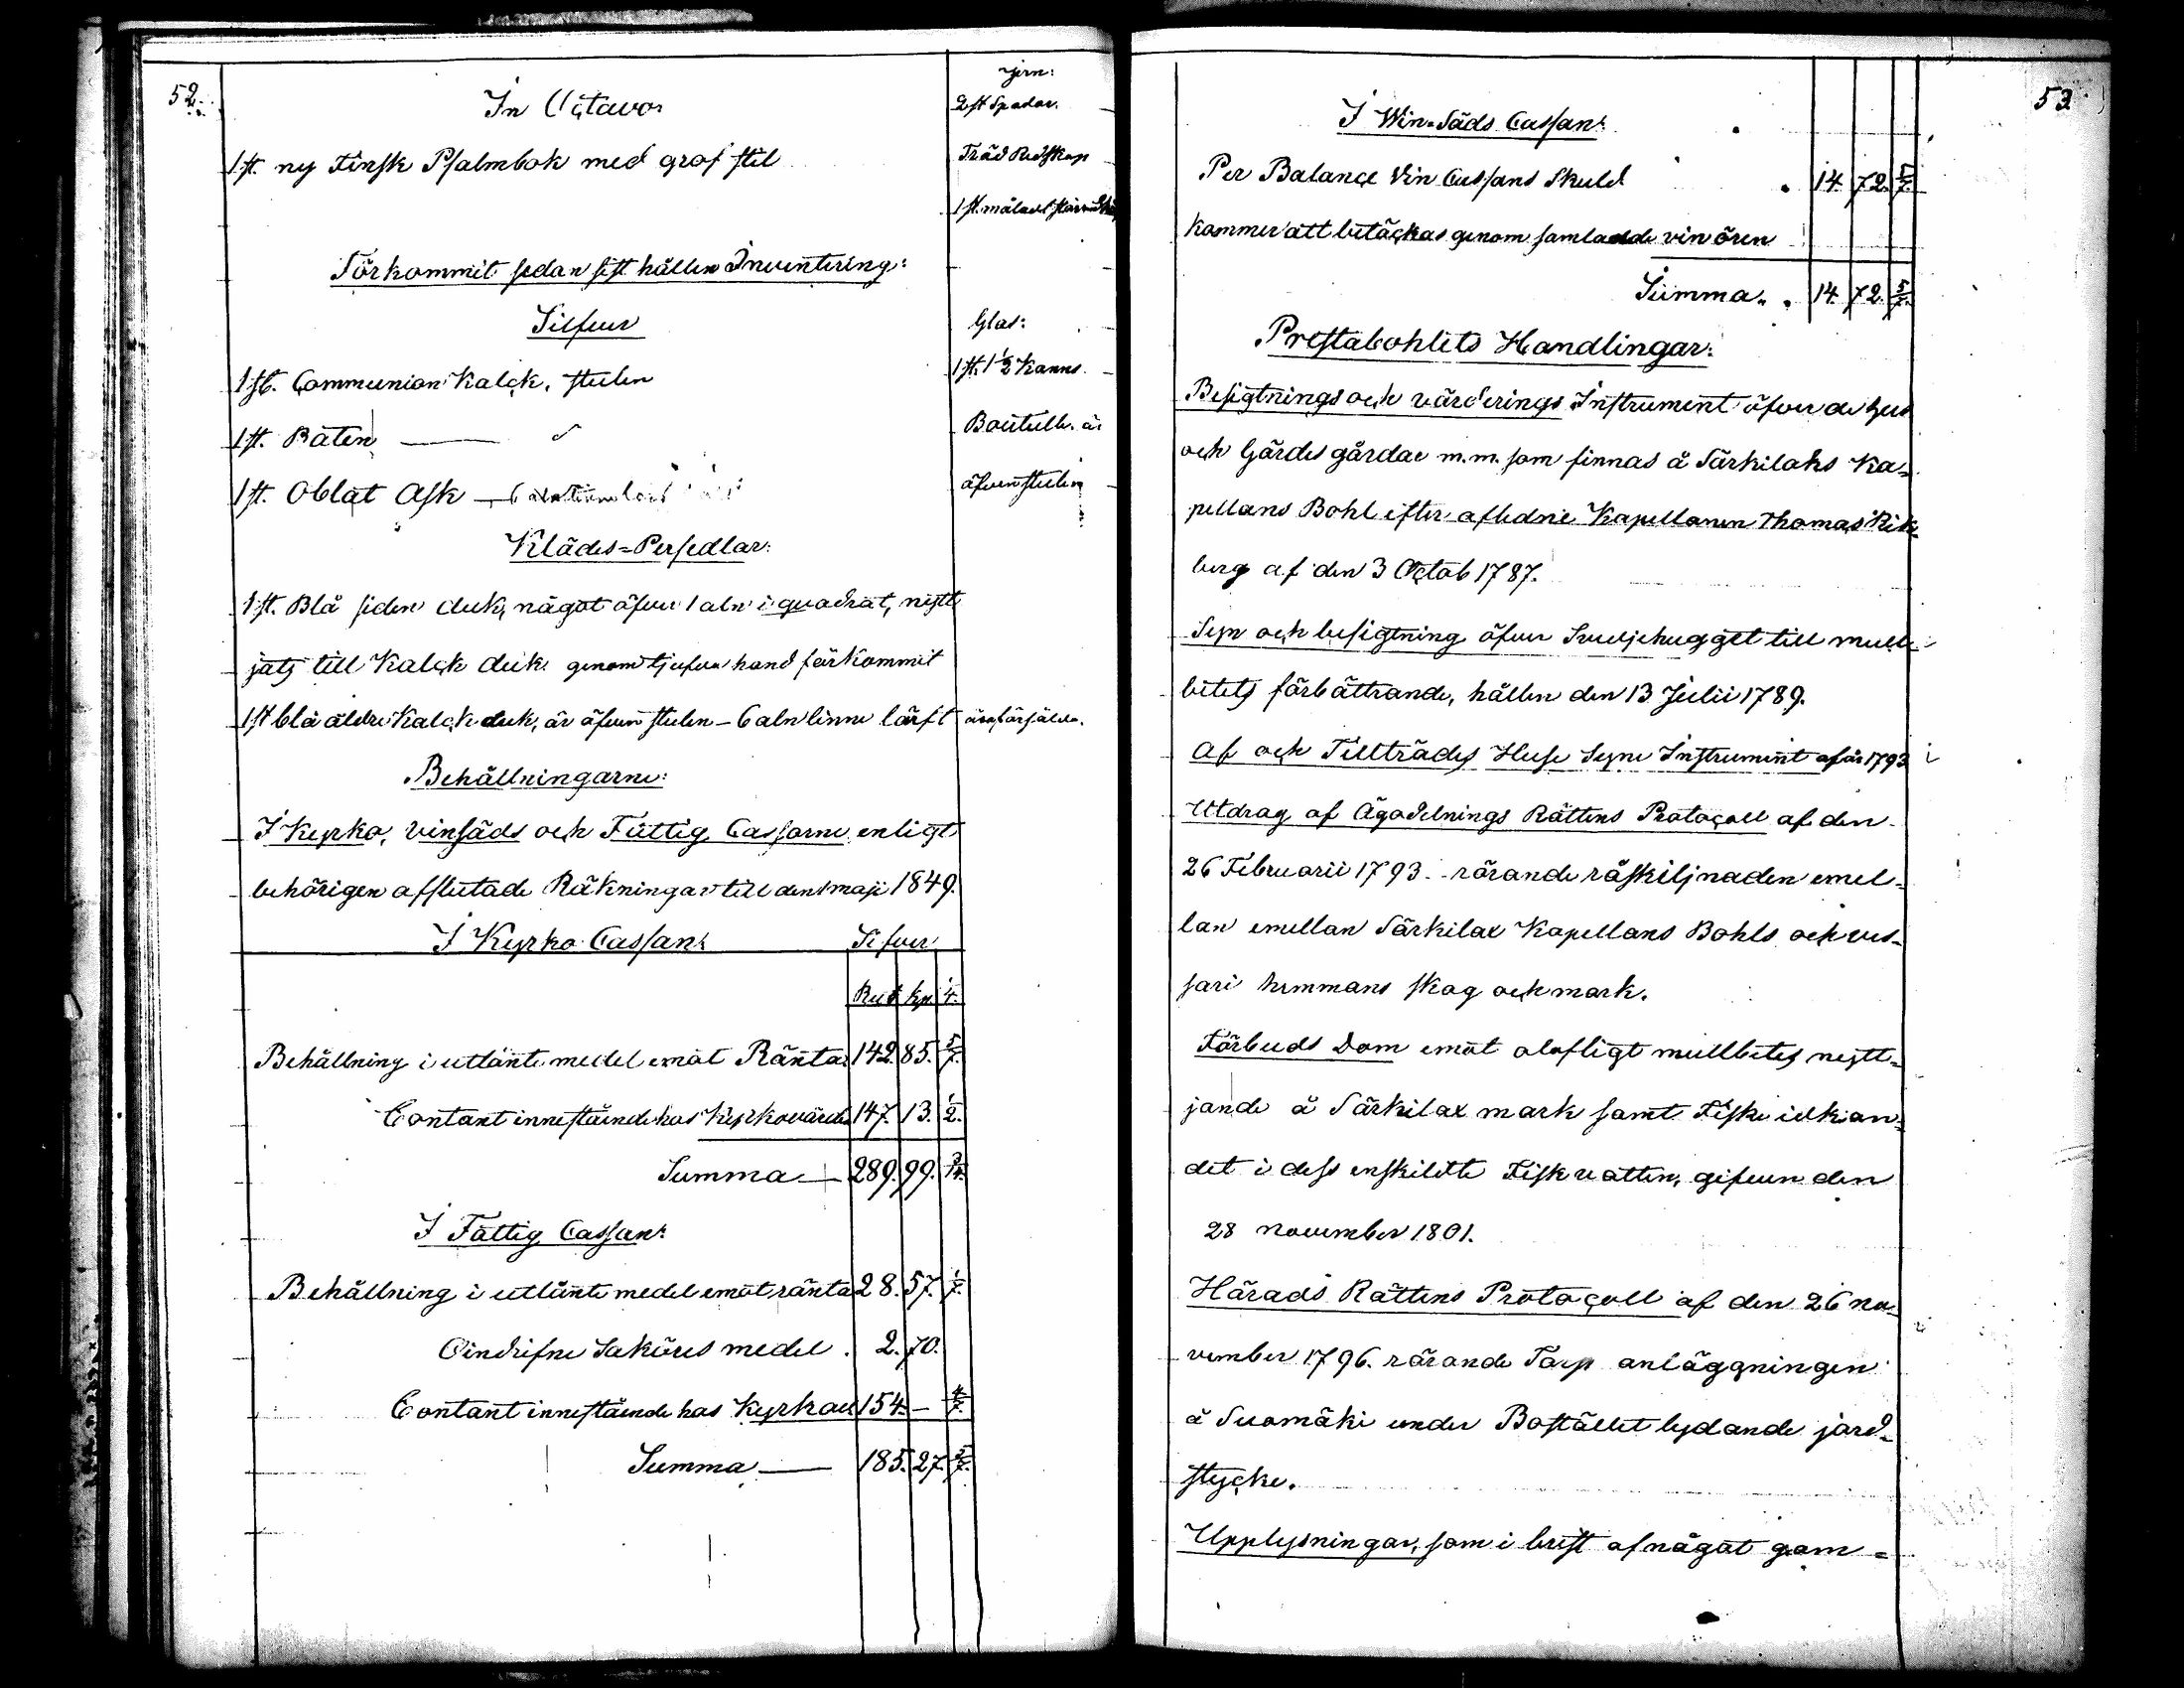 52.
In Octavo:
1 st. ny Finsk Psalmbok med grof stil
Förkommit sedan sist hållen Inventering:
Silfver
1 st. Communion Kalck, stulen
1 st. Paten —— d
1 st. Oblat Ask —
Klädes=Persedlar:
1 st. Blå siden duk, något öfver 1 aln i quadrat, nytt
jats till Kalck duk genom tjufva hand förkommit
1 st blå äldre Kalck duk, är äfven stulen — 6 aln linne lärft
Behållningarne:
I Kyrko, vinsäds och Fattig Cassorne enligt
behörigen afslutade Räkningar till den 1 maji 1849.
I Kyrko Cassan: Silfver
Rub Kp
Behållning i utlånte medel emot Ränta 142. 85. 5/7.
Contant inneståendehos Kyrkovärden 147. 13. 1/2.
Summa — 289. 99. 3/14.
I Fattig Cassan:
Behållning i utlånte medel emot ränta 28. 57. 1/7.
Oindrifne Saköres medel . 2. 70.
Contant innestående hos Kyrkov 154. — 4/7.
Summa —— 185. 27. 5/7.
jern:
2 st Spadar.
Träd Redskap
1 st. målad
Glas:
1 st. 1 1/2 Kanns
Boutelle. är
äfven stulen
äro försålda.
53
I Win=Säds Cassan:
Per Balance Vin Cassans Skuld . 14. 72. 5/7.
kommer att betäckas genom samlade vin ören
Summa. . 14. 72. 5/7.
Prestabohlets Handlingar:
Besigtnings och värderings Instrument öfver de hus
och Gärdes gårdar m.m. som finnas å Särkilaks Ka=
pellans Bohl efter aflidne Kapellanen Thomas Rik=
berg af den 3 Octob 1787.
Syn och besigtning öfver Svedjehugget till mull
betets förbättrande, hållen den 13 Julii 1789.
Af och Tillträdes Huse Syne Instrument af år 1793
Utdrag af Ägodelnings Rättens Protocoll af den
26 Februarii 1793. rörande råskiljnaden emel=
lan emellan Särkilax Kapellans Bohls och ves=
sari hemmans skog och mark.
Förbuds Dom emot olofligt mullbetes nytt=
jande å Särkilax mark samt Fiske idkan=
det i dess enskildte Fiskvatten, gifven den
28 november 1801.
Härads Rättens Protocoll af den 26 no=
vember 1796. rörande Torp anläggningen
å Suomäki under Bostället lydande jord=
stycke.
Upplysningar, som i brist af något gam=